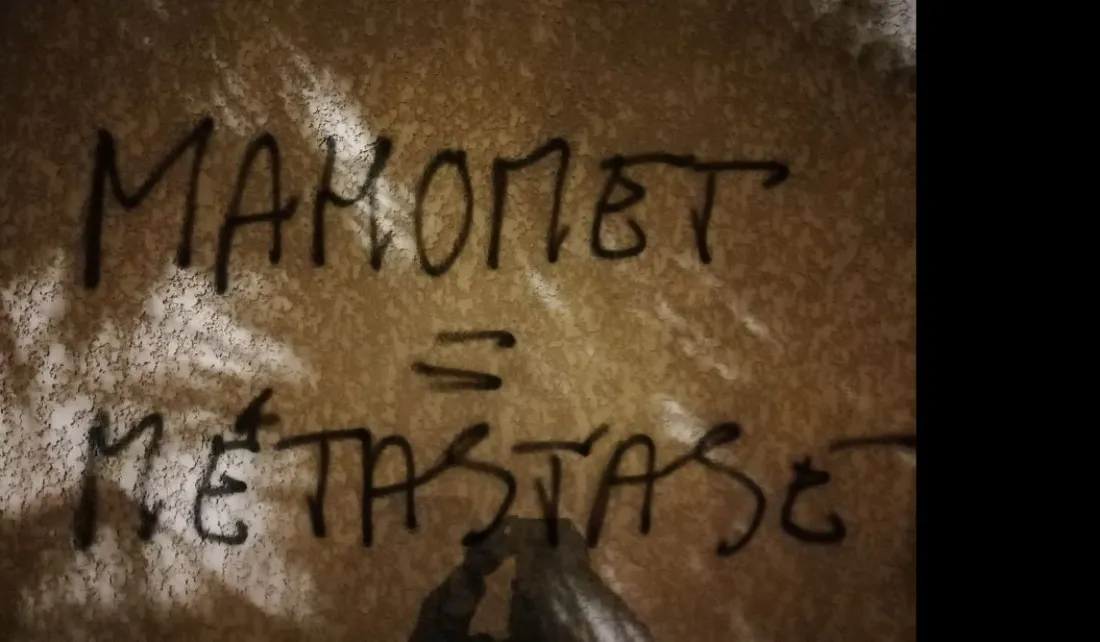 MAHOMET
=
MÉTASTASE